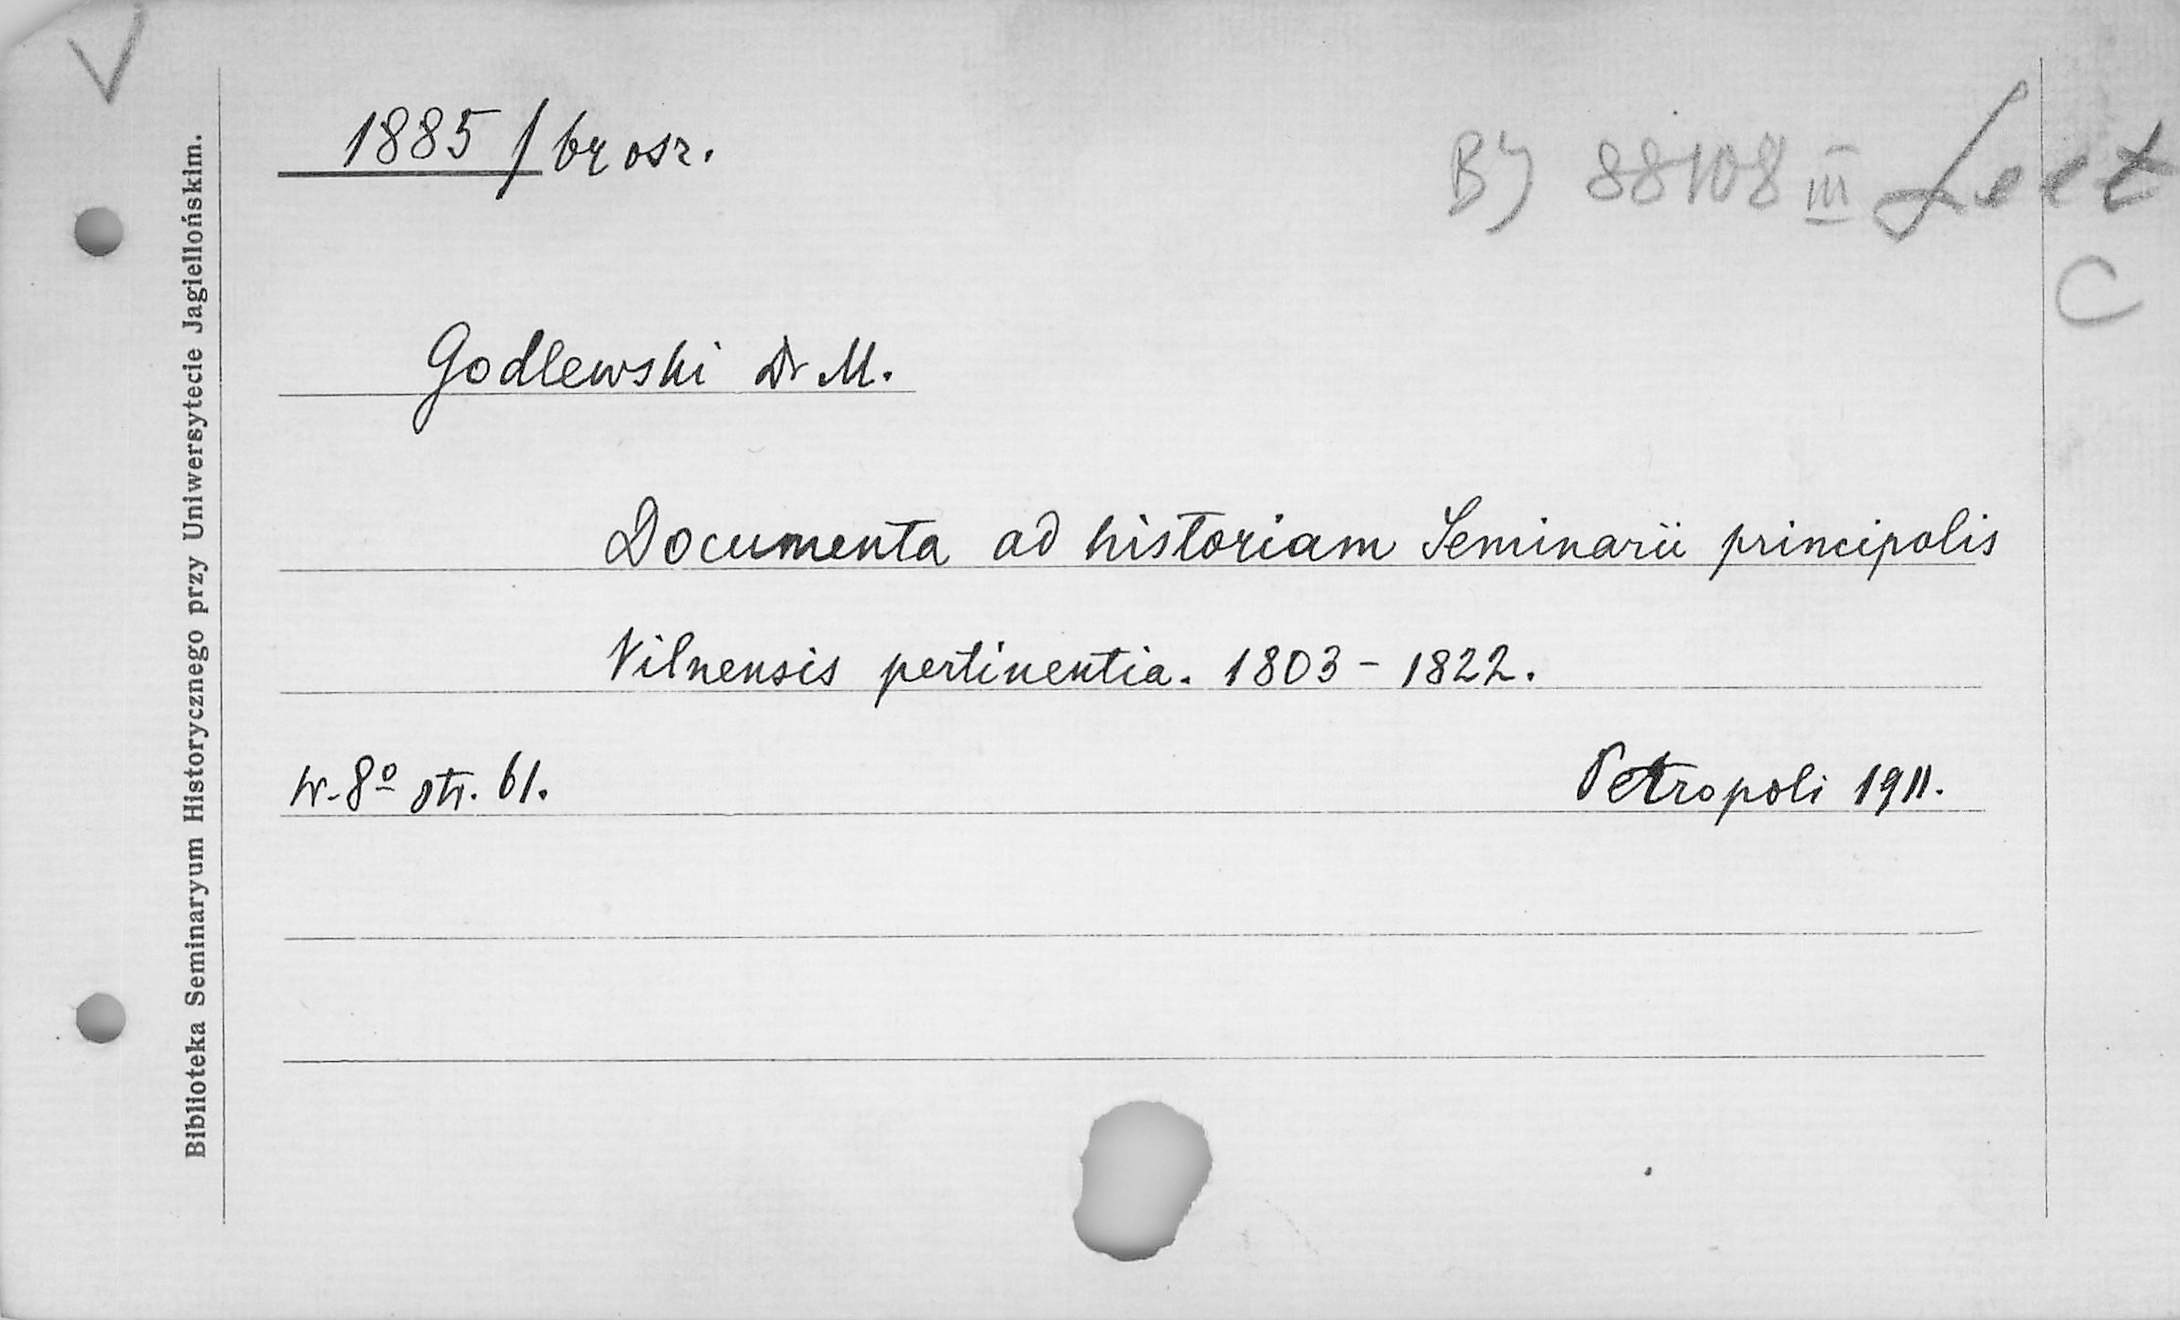 V
1885 / brosz.
BJ 88108 III Lect
C
Godlewski Dr M.
Documenta ad historiam Seminarii principalis
Vilnensis pertinentia. 1803 - 1822.
w. 8º str. 61.
Petropoli 1911.
Biblioteka Seminaryum Historycznego przy Uniwersytecie Jagiellońskim.